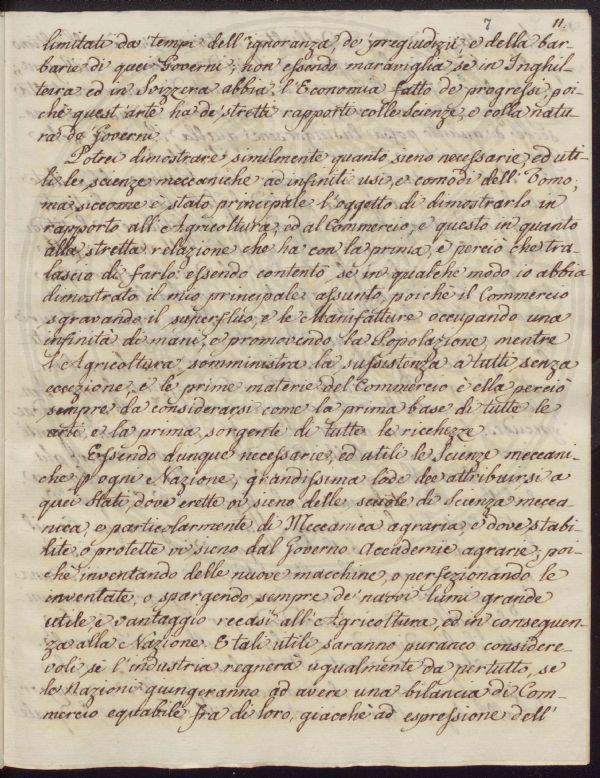 7 11.
limitati da tempi dell'ignoranza, de' pregiudizii, e della bar-
barie di quei Governi; non essendo maraviglia se in Inghil-
terra ed in Svizzera abbia l'Economia fatto de progressi, poi-
chè quest'arte ha de' stretti rapporti colle Scienze, e colla natu-
ra de Governi.
Potrei dimostrare similmente quanto sieno necessarie, ed uti-
li le scienze meccaniche ad infiniti usi, e comodi dell'Uomo;
ma siccome è stato principale l'oggetto di dimostrarlo in
rapporto all'Agricoltura, ed al Commercio, e questo in quanto
alla stretta relazione che ha con la prima, e perciò che tra-
lascio di farlo essendo contento se in qualche modo io abbia
dimostrato il mio principale assunto, poichè il Commercio
sgravando il superfluo, e le Manifatture occupando una
infinità di mani, e promovendo la Popolazione, mentre
l'Agricoltura somministra la sussistenza a tutti senza
eccezione, e le prime materie del Commercio è ella perciò
sempre da considerarsi come la prima base di tutte le
arti, e la prima sorgente di tutte le richezze.
Essendo dunque necessarie, ed utili le Scienze meccani-
che p ogni Nazione, grandissima lode dee attribuirsi a
quei Stati, dove erette vi sieno delle scuole di Scienza mecca-
nica, e particolarmente di Meccanica agraria, e dove stabi-
lite, o protette vi sieno dal Governo Accademie agrarie; poi-
chè inventando delle nuove macchine, o perfezionando le
inventate, o spargendo sempre de' nuovi lumi grande
utile e vantaggio recasi all'Agricoltura, ed in conseguen-
za alla Nazione. E tali utili saranno puranco considere-
voli se l'industria regnerà ugualmente da pertutto, se
le Nazioni giungeranno ad avere una bilancia di Com-
mercio equabile fra di loro, giacchè ad espressione dell'